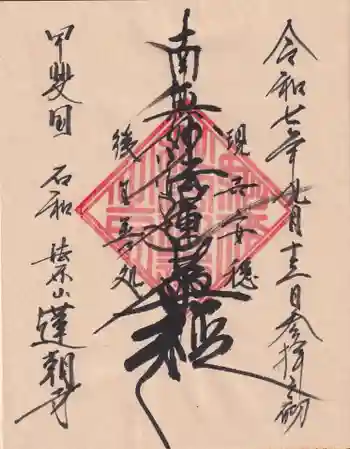 令和七年九月十三日参拝之砌
現世安穏
南無妙法蓮華経
後生善処
甲斐国 石和 山 蓮朝寺